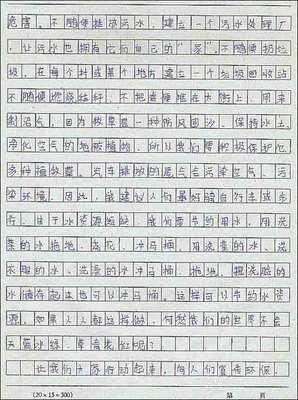 危害。不随便排放污水，建立一个污水处理厂
，让污水也拥有它们自己的“家”。不随便扔垃
圾，在每个村或某个地方建立一个垃圾回收站
不随便燃烧秸秆，不把粪便堆在大街上，用来
制沼气，因为秋草是一种防风固沙、保持水土、
净化空气的地被植物，所以我们要积极保护它
多种植牧草。汽车排放的尾气会污染空气、污
染环境，因此，我建议人们最好骑自行车或步
行。由于水资源短缺，我们要节约用水，用洗
菜的水拖地、浇花、冲马桶，用洗澡的水、洗
衣服的水、洗菜的水冲马桶、拖地，把洗脸的
水储存起来也可以冲马桶。这样可以节约水资
源。如果人人都这样做，何愁我们的世界不会
天蓝水绿、草青花红呢？
让我们大家行动起来，向人们宣传环保！
(20×15=300) 第 页